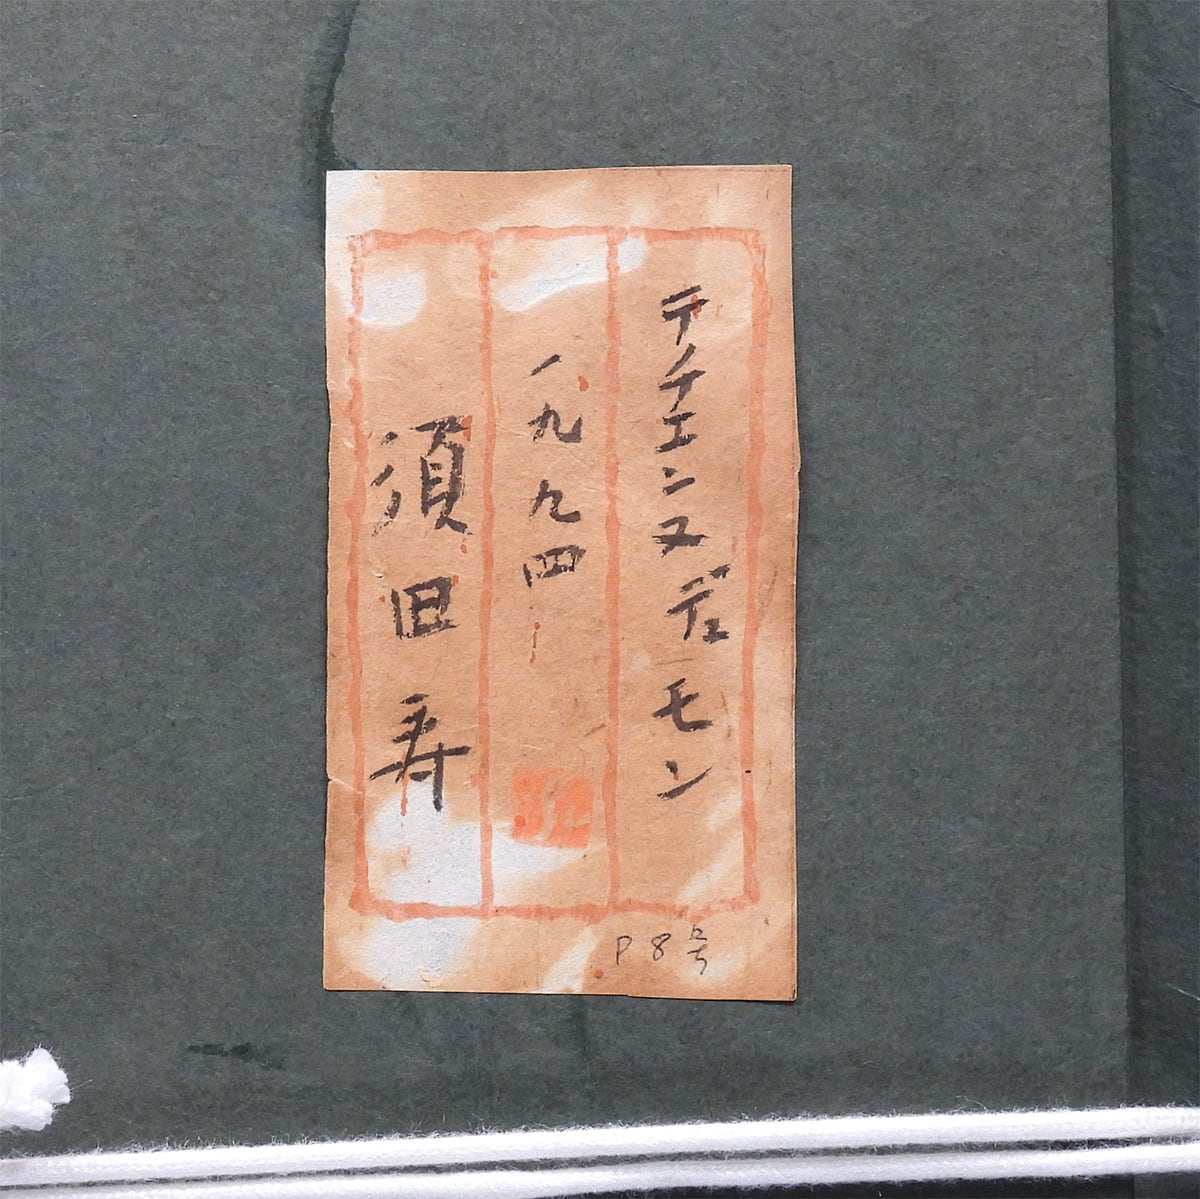 テチエンヌデュモン
一九九四
須田寿
P8号